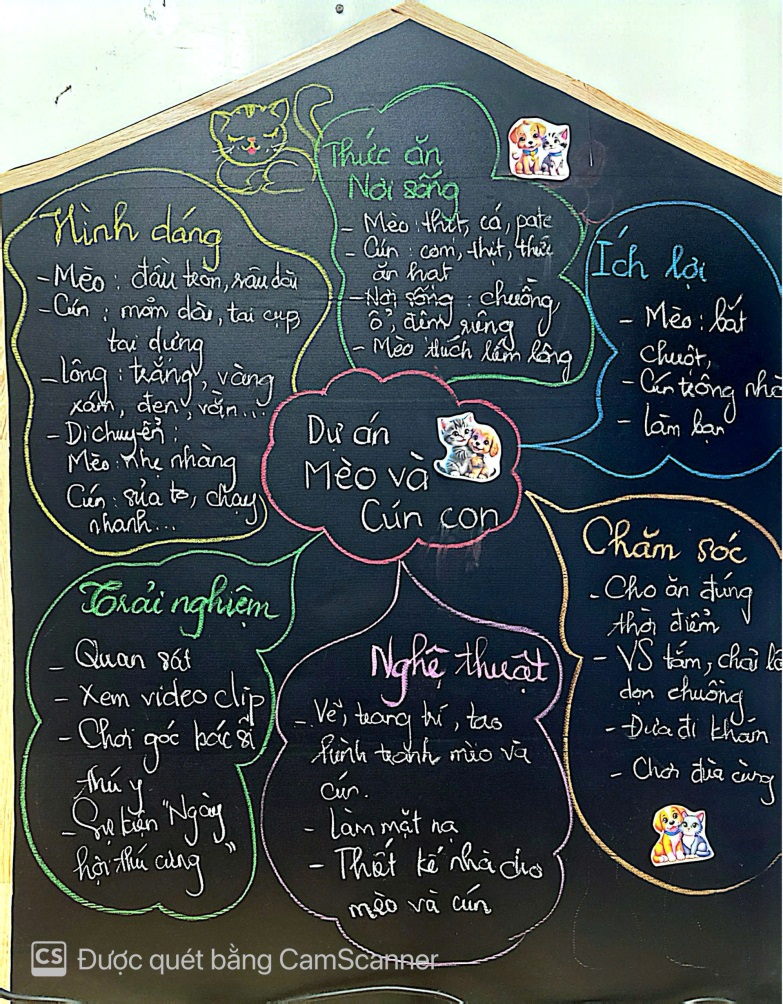 Thức ăn
Nơi sống
- Mèo: thịt, cá, pate
- Cún: cơm, thịt, thức
ăn hạt
- Nơi sống: chuồng
ổ, đệm riêng
- Mèo thích liếm lông
Hình dáng
- Mèo: đầu tròn, râu dài
- Cún: mõm dài, tai cụp
tai dựng
- Lông: trắng, vàng
xám, đen, vằn...
- Di chuyển:
Mèo: nhẹ nhàng
Cún: sủa to, chạy
nhanh...
Ích lợi
- Mèo: bắt
chuột,
- Cún trông nhà
- Làm bạn
Dự án
Mèo và
Cún con
Chăm sóc
- Cho ăn đúng
thời điểm
- VS tắm, chải
dọn chuồng
- Đưa đi khám
- Chơi đùa cùng
Trải nghiệm
- Quan sát
- Xem video clip
- Chơi góc bác sĩ
thú y
- Sự kiện "Ngày
hội thú cưng"
Nghệ thuật
- Vẽ, trang trí, tạo
hình tranh mèo và
cún.
- Làm mặt nạ
- Thiết kế nhà cho
mèo và cún
CS Được quét bằng CamScanner